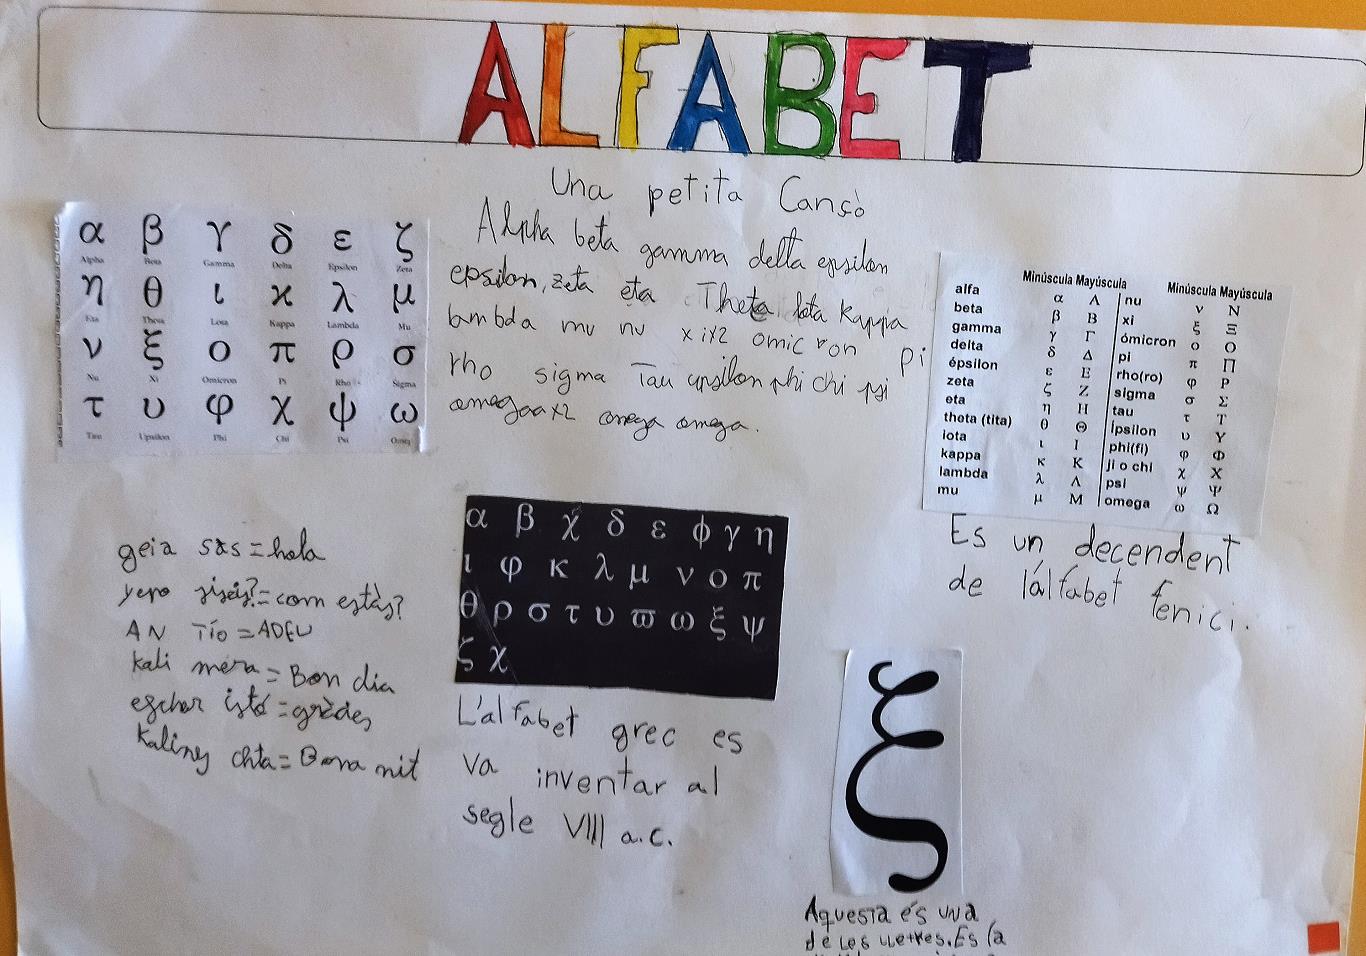 ALFABET
Una petita Cansò
Alpha beta gamma delta epsilon
epsilon, zeta eta Theta Iota Kappa
lambda mu nu xix2 omicron pi
rho sigma Tau upsilon phi chi psi
omegaax2 omega omega.
α β γ δ ε ζ
Alpha Beta Gamma Delta Epsilon Zeta
η θ ι κ λ μ
Eta Theta Iota Kappa Lambda Mu
ν ξ ο π ρ σ
Nu Xi Omicron Pi Rho Sigma
τ υ φ χ ψ ω
Tau Upsilon Phi Chi Psi
Minúscula Mayúscula
alfa α Α
beta β Β
gamma γ Γ
delta δ Δ
épsilon ε Ε
zeta ζ Ζ
eta η Η
theta (tita) θ Θ
iota ι Ι
kappa κ Κ
lambda λ Λ
mu μ Μ
Minúscula Mayúscula
nu ν Ν
xi ξ Ξ
ómicron ο Ο
pi π Π
rho(ro) φ Ρ
sigma σ Σ
tau τ Τ
ípsilon υ Υ
phi(fi) φ Φ
ji o chi χ Χ
psi ψ Ψ
omega ω Ω
Es un decendent
de l'alfabet fenici.
geia sas = hola
= com estàs?
AN TÍO = ADEU
kali mera = Bon dia
istó = gràcies
kaliny chta = Bona nit
α β χ δ ε ϕ γ η
ι φ κ λ μ ν ο π
θ ρ σ τ υ ϖ ω ξ ψ
ζ χ
L'alfabet grec es
va inventar al
segle VIII a.c.
ξ
Aquesta és una
de les lletres. És la